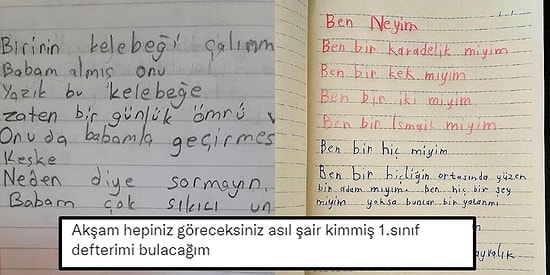 Birinin kelebeği çalınm
Babam almış onu
Yazık bu kelebeğe
zaten bir günlük ömrü v
Onu da babamla geçirmes
Keşke
Neden diye sormayın
Babam çok sıkıcı un
Ben Neyim
Ben bir karadelik miyim
Ben bir kek miyim
Ben bir iki miyim
Ben bir İsmail miyim
Ben bir hiç miyim
Ben bir hiçliğin ortasında yüzen
bir adam mıyım. Ben hiç bir şey
miyim yoksa bunlar bir yalanmı
ayvalık
Akşam hepiniz göreceksiniz asıl şair kimmiş 1.sınıf
defterimi bulacağım